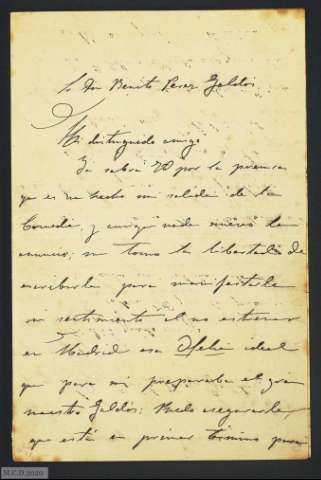 Sr Don Benito Perez Galdós
Mi distinguido amigo
Ya sabrá Vd por la prensa
que es un hecho mi salida de la
Comedia, y aunque nada nuevo le
anuncio; me tomo la libertad de
escribirle para manifestarle
mi sentimiento al no estrenar
en Madrid esa Ofelia ideal
que para mi preparaba el gran
maestro Galdós: Puedo asegurarle,
que está en primer término para
M.C.D. 2020